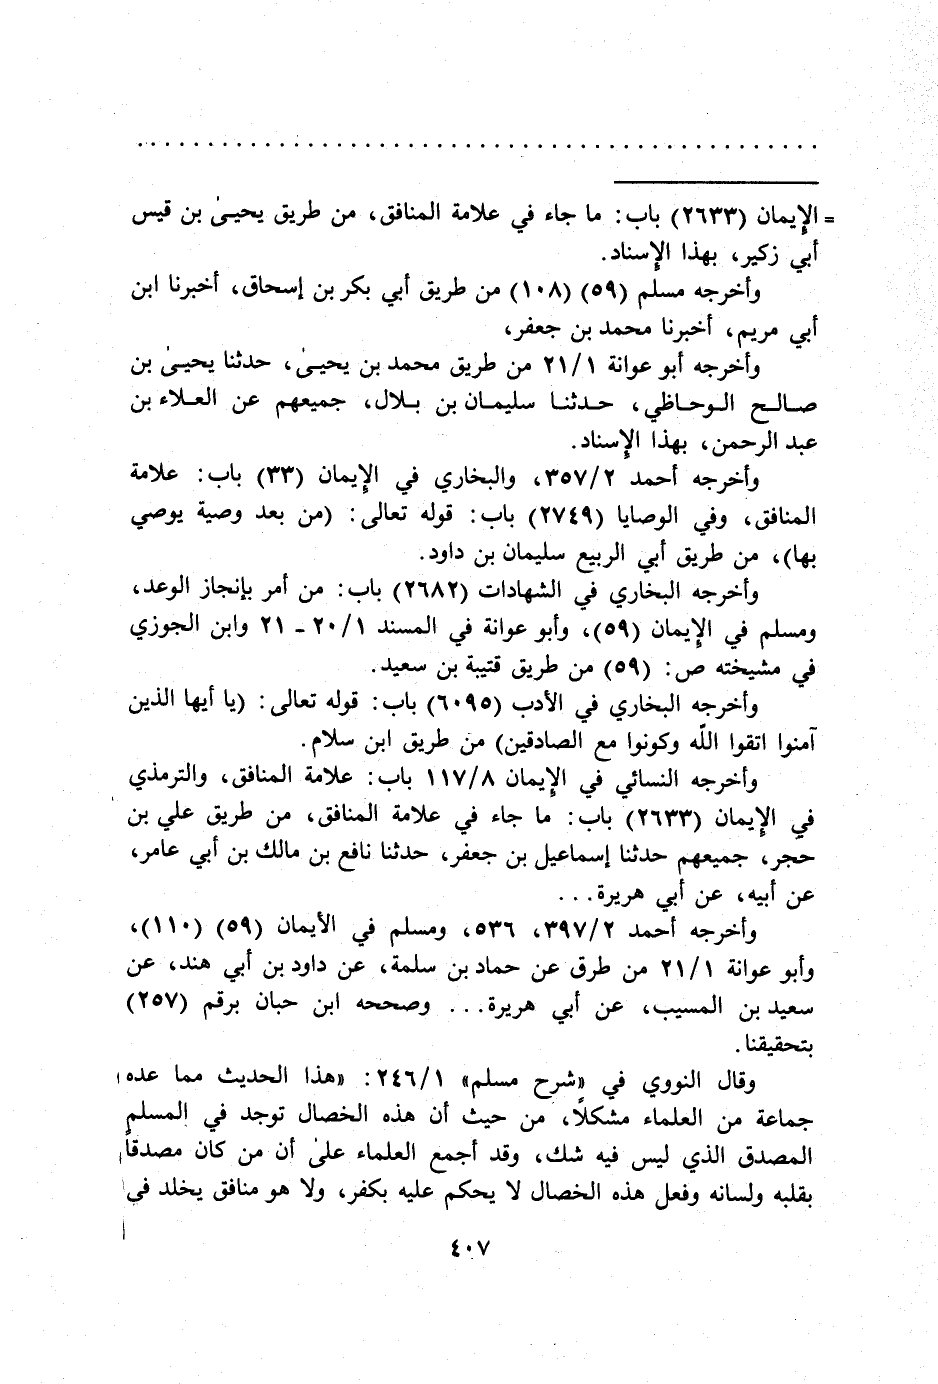 = الإيمان (٢٦٣٣) باب: ما جاء في علامة المنافق، من طريق يحيىٰ بن قيس
أبي زكير، بهذا الإسناد.
وأخرجه مسلم (٥٩) (١٠٨) من طريق أبي بكر بن إسحاق، أخبرنا ابن
أبي مريم، أخبرنا محمد بن جعفر،
وأخرجه أبو عوانة ٢١/١ من طريق محمد بن يحيىٰ، حدثنا يحيىٰ بن
صالح الوحاظي، حدثنا سليمان بن بلال، جميعهم عن العلاء بن
عبد الرحمن، بهذا الإسناد.
وأخرجه أحمد ٣٥٧/٢، والبخاري في الإيمان (٣٣) باب: علامة
المنافق، وفي الوصايا (٢٧٤٩) باب: قوله تعالى: (من بعد وصية يوصي
بها)، من طريق أبي الربيع سليمان بن داود.
وأخرجه البخاري في الشهادات (٢٦٨٢) باب: من أمر بإنجاز الوعد،
ومسلم في الإيمان (٥٩)، وأبو عوانة في المسند ٢٠/١ - ٢١ وابن الجوزي
في مشيخته ص: (٥٩) من طريق قتيبة بن سعيد.
وأخرجه البخاري في الأدب (٦٠٩٥) باب: قوله تعالى: (يا أيها الذين
آمنوا اتقوا اللّه وكونوا مع الصادقين) من طريق ابن سلام.
وأخرجه النسائي في الإيمان ١١٧/٨ باب: علامة المنافق، والترمذي
في الإيمان (٢٦٣٣) باب: ما جاء في علامة المنافق، من طريق علي بن
حجر، جميعهم حدثنا إسماعيل بن جعفر، حدثنا نافع بن مالك بن أبي عامر،
عن أبيه، عن أبي هريرة...
وأخرجه أحمد ٣٩٧/٢، ٥٣٦، ومسلم في الأيمان (٥٩) (١١٠)،
وأبو عوانة ٢١/١ من طرق عن حماد بن سلمة، عن داود بن أبي هند، عن
سعيد بن المسيب، عن أبي هريرة... وصححه ابن حبان برقم (٢٥٧)
بتحقيقنا.
وقال النووي في «شرح مسلم» ٢٤٦/١: «هذا الحديث مما عده
جماعة من العلماء مشكلاً، من حيث أن هذه الخصال توجد في المسلم
المصدق الذي ليس فيه شك، وقد أجمع العلماء علىٰ أن من كان مصدقاً
بقلبه ولسانه وفعل هذه الخصال لا يحكم عليه بكفر، ولا هو منافق يخلد في
٤٠٧